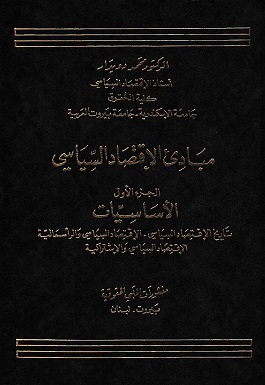 الدكتور محمد دويدار
أستاذ الاقتصاد السياسي
كلية الحقوق
جامعة الإسكندرية - جامعة بيروت العربية
مبادئ الاقتصاد السياسي
الجزء الأول
الأساسيات
تاريخ الاقتصاد السياسي - الاقتصاد السياسي والرأسمالية
الاقتصاد السياسي والاشتراكية
منشورات الحلبي الحقوقية
بيروت - لبنان